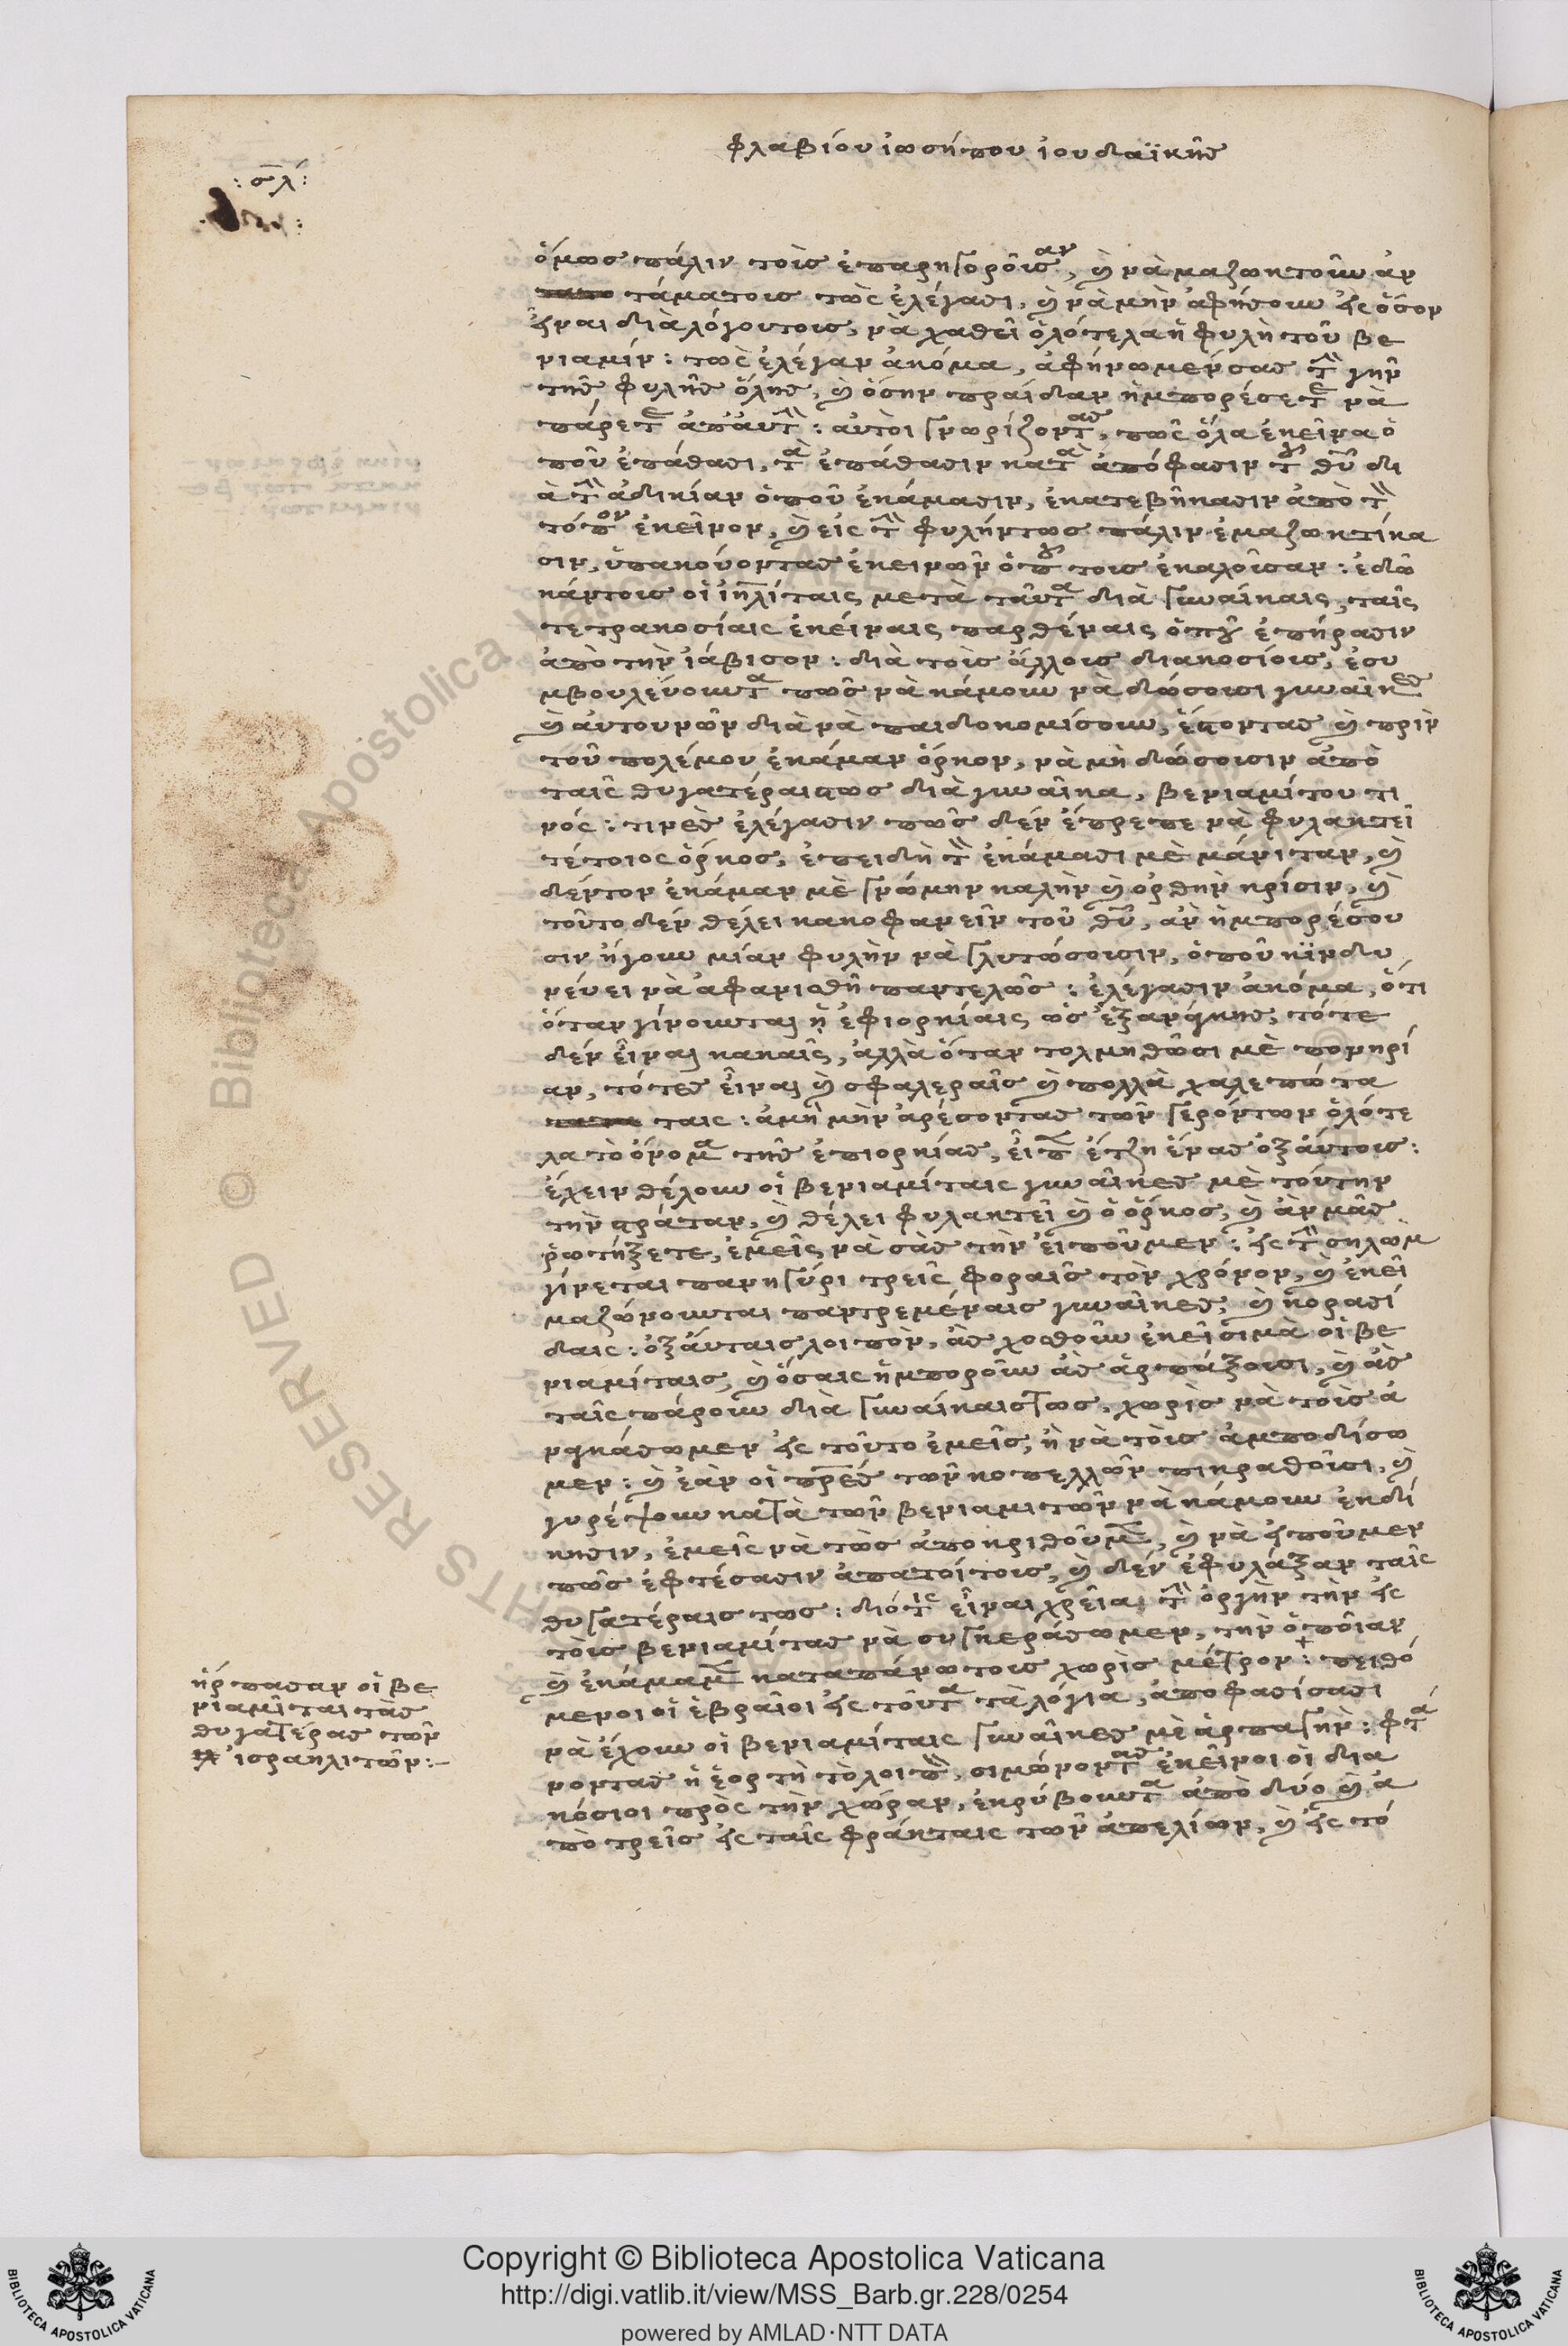 φλαβίου ἰωσήπου ἰουδαϊκῆς
: σλ :
ὅμως πάλιν τοὶς ἐπαρηγοροῦσαν, καὶ νὰ μαζωκτοῦν ἀν
τάματοις τῶς ἐλέγασι, καὶ νὰ μὴν ἀφήσουν εἰς ὅσον
εἶναι διὰ λόγουτοις, νὰ χαθεῖ ὁλότελα ἡ φυλὴ τοῦ βε
νιαμίν: τῶς ἐλέγαν ἀκόμα, ἀφήνωμέν σας τὴν γῆν
τῆς φυλῆς ὅλης, καὶ ὅσην πραίδαν ἠμπορέσετε νὰ
πάρετε ἀπ' αὐτὴν: αὐτοὶ γνωρίζοντας, πῶς ὅλα ἐκεῖνα ὁ
ποῦ ἐπάθασι, τὰ ἐπάθασιν κατὰ ἀπόφασιν τοῦ θῦ δι
ὰ τὴν ἀδικίαν ὁποῦ ἐκάμασιν, ἐκατεβήκασιν ἀπὸ τὸν
τόπον ἐκεῖνον, καὶ εἰς τὴν φυλήντως πάλιν ἐμαζωκτίκα
σιν, ὑπακούοντας ἐκεινῶν ὁποῦ τοις ἐκαλοῦσαν: ἐδῶ
κάντοις οἱ ἰηλίταις μετὰ ταῦτα διὰ γυναίκαις, ταῖς
τετρακοσίαις ἐκείναις παρθέναις ὁποῦ ἐπήρασιν
ἀπὸ τὴν ἰάβισον: διὰ τοὶς ἄλλοις διακοσίοις, ἐσυ
μβουλεύουντα πῶς νὰ κάμουν νὰ δώσουσι γυναῖκες
καὶ αὐτουνῶν διὰ νὰ παιδοκομίσουν, ἔστοντας καὶ πρὶν
τοῦ πολέμου ἐκάμαν ὅρκον, νὰ μὴ δώσουσιν ἀπὸ
ταῖς θυγατέραιςτως διὰ γυναῖκα, βενιαμίτου τι
νός: τινὲς ἐλέγασιν πῶς δὲν ἔπρεπε νὰ φυλακτεῖ
τέτοιος ὅρκος, ἐπειδὴ τὸν ἐκάμασι μὲ μάνιταν, καὶ
δέντον ἐκάμαν μὲ γνώμην καλὴν καὶ ὀρθὴν κρίσιν, καὶ
τοῦτο δὲν θέλει κακοφανεῖν τοῦ θῦ, ἂν ἠμπορέσου
σιν ἤγουν μίαν φυλὴν νὰ γλυτώσουσιν, ὁποῦ κϊνδυ
νεύει νὰ ἀφανισθῇ παντελῶς: ἐλέγασιν ἀκόμα, ὅτι
ὅταν γίνουνται ᾑ ἐφιορκίαις ὡς ἐξ ἀνάγκης, τότε
δὲν εἶναι κακαῖς, ἀλλὰ ὅταν τολμηθῶσι μὲ πονηρί
αν, τότες εἶναι καὶ σφαλεραῖς καὶ πολλὰ χαλεπώτα
ταις: ἀμὴ μὴν ἀρέσοντας τῶν γερόντων ὁλότε
λα τὸ ὄνομα τῆς ἐπιορκίας, εἶπεν ἔτζη ἕνας ὀξ αὔτοις:
ἔχειν θέλουν οἱ βενιαμίταις γυναῖκες μὲ τούτην
τὴν στράταν, καὶ θέλει φυλακτεῖ καὶ ὁ ὅρκος, καὶ ἂν μᾶς
ῥωτήξετε, ἐμεῖς νὰ σᾶς τὴν εἰποῦμεν: εἰς τὴν σηλὼμ
γίνεται πανηγύρι τρεῖς φοραῖς τὸν χρόνον, καὶ ἐκεῖ
μαζώνουνται παντρεμέναις γυναῖκες, καὶ κορασί
δαις: ὀξ αὔταις λοιπὸν, ἂς χοσθοῦν ἐκεῖ σιμὰ οἱ βε
νιαμίταις, καὶ ὅσαις ἠμποροῦν ἂς ἁρπάξουσι, καὶ ἂς
ταῖς πάρουν διὰ γυναίκαιςτως, χωρὶς νὰ τοὶς ἀ
νγκάσωμεν εἰς τοῦτο ἐμεῖς, ἢ νὰ τοὶς ἀμποδίσω
μεν: καὶ ἐὰν οἱ πρες τῶν κοπελλῶν πικραθοῦσι, καὶ
γυρέψουν κατὰ τῶν βενιαμιτῶν νὰ κάμουν ἐκδί
κησιν, ἐμεῖς νὰ τῶς ἀποκριθοῦμεν, καὶ νὰ εἰποῦμεν
πῶς ἐφτέσασιν ἀπατοίτοις, καὶ δὲν ἐφυλάξαν ταῖς
θυγατέραις τως: διότις εἶναι χρεῖα, τὴν ὀργὴν τὴν εἰς
τοὶς βενιαμίτας νὰ συγκεράσωμεν, τὴν ὁποῖαν
καὶ ἐκάμαμεν καταπάνωτοις χωρὶς μέτρον: πειθό
μενοι οἱ ἑβραῖοι εἰς τοῦτα τὰ λόγια, ἀποφασίσασι
νὰ ἔχουν οἱ βενιαμίταις γυναῖκες μὲ ἁρπαγήν: φτά
νοντας ἡ ἑορτὴ τὸ λοιπὸν, σιμώνοντας ἐκεῖνοι οἱ δια
κόσιοι πρὸς τὴν χώραν, ἐκρύβουντα ἀπὸ δύο καὶ ἀ
πὸ τρεῖς εἰς ταῖς φράκταις τῶν ἀπελίων, καὶ εἰς τὸ
ἥρπασαν οἱ βε
νιαμῖται τὰς
θυγατέρας τῶν
ἰσραηλιτῶν:-
Copyright © Biblioteca Apostolica Vaticana
http://digi.vatlib.it/view/MSS_Barb.gr.228/0254
powered by AMLAD·NTT DATA
BIBLIOTECA APOSTOLICA VATICANA
BIBLIOTECA APOSTOLICA VATICANA